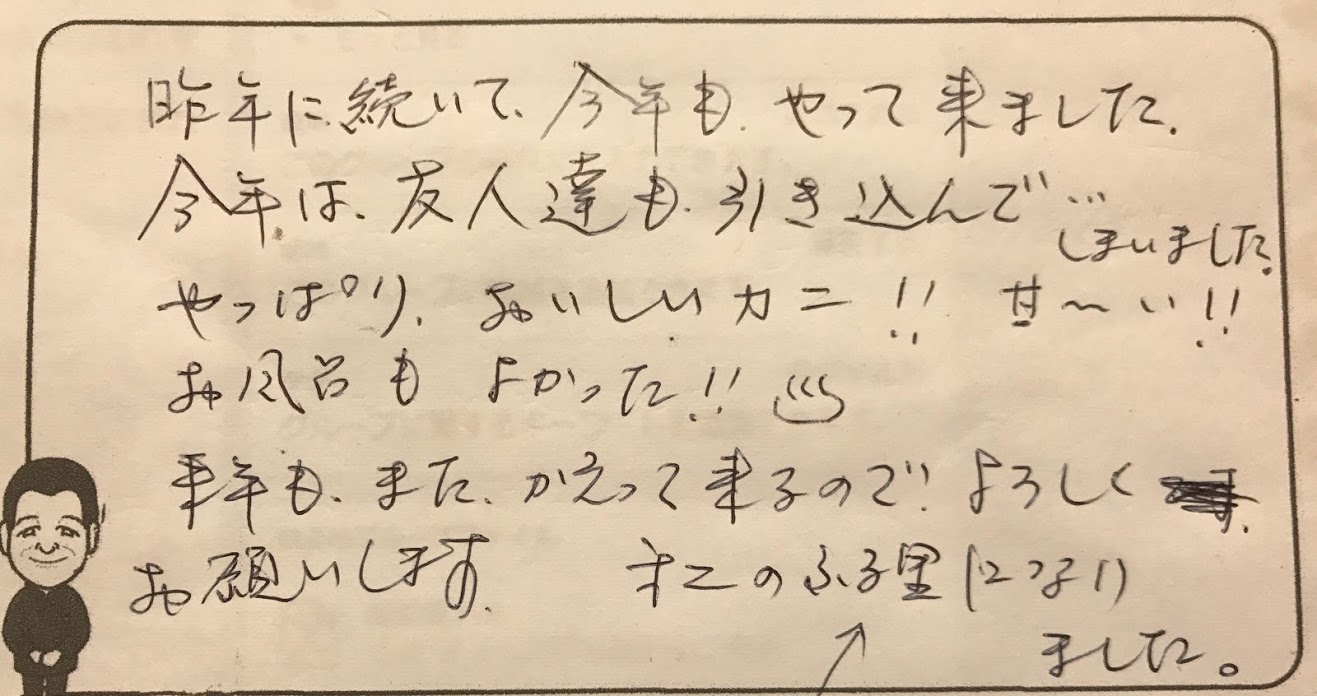 昨年に続いて、今年も、やって来ました。
今年は、友人達も、引き込んで…
しまいました。
やっぱり、おいしいカニ!! 甘〜い!!
お風呂も よかった!!
来年も、また、かえって来るので! よろしく
お願いします。 オニのふる里になり
ました。